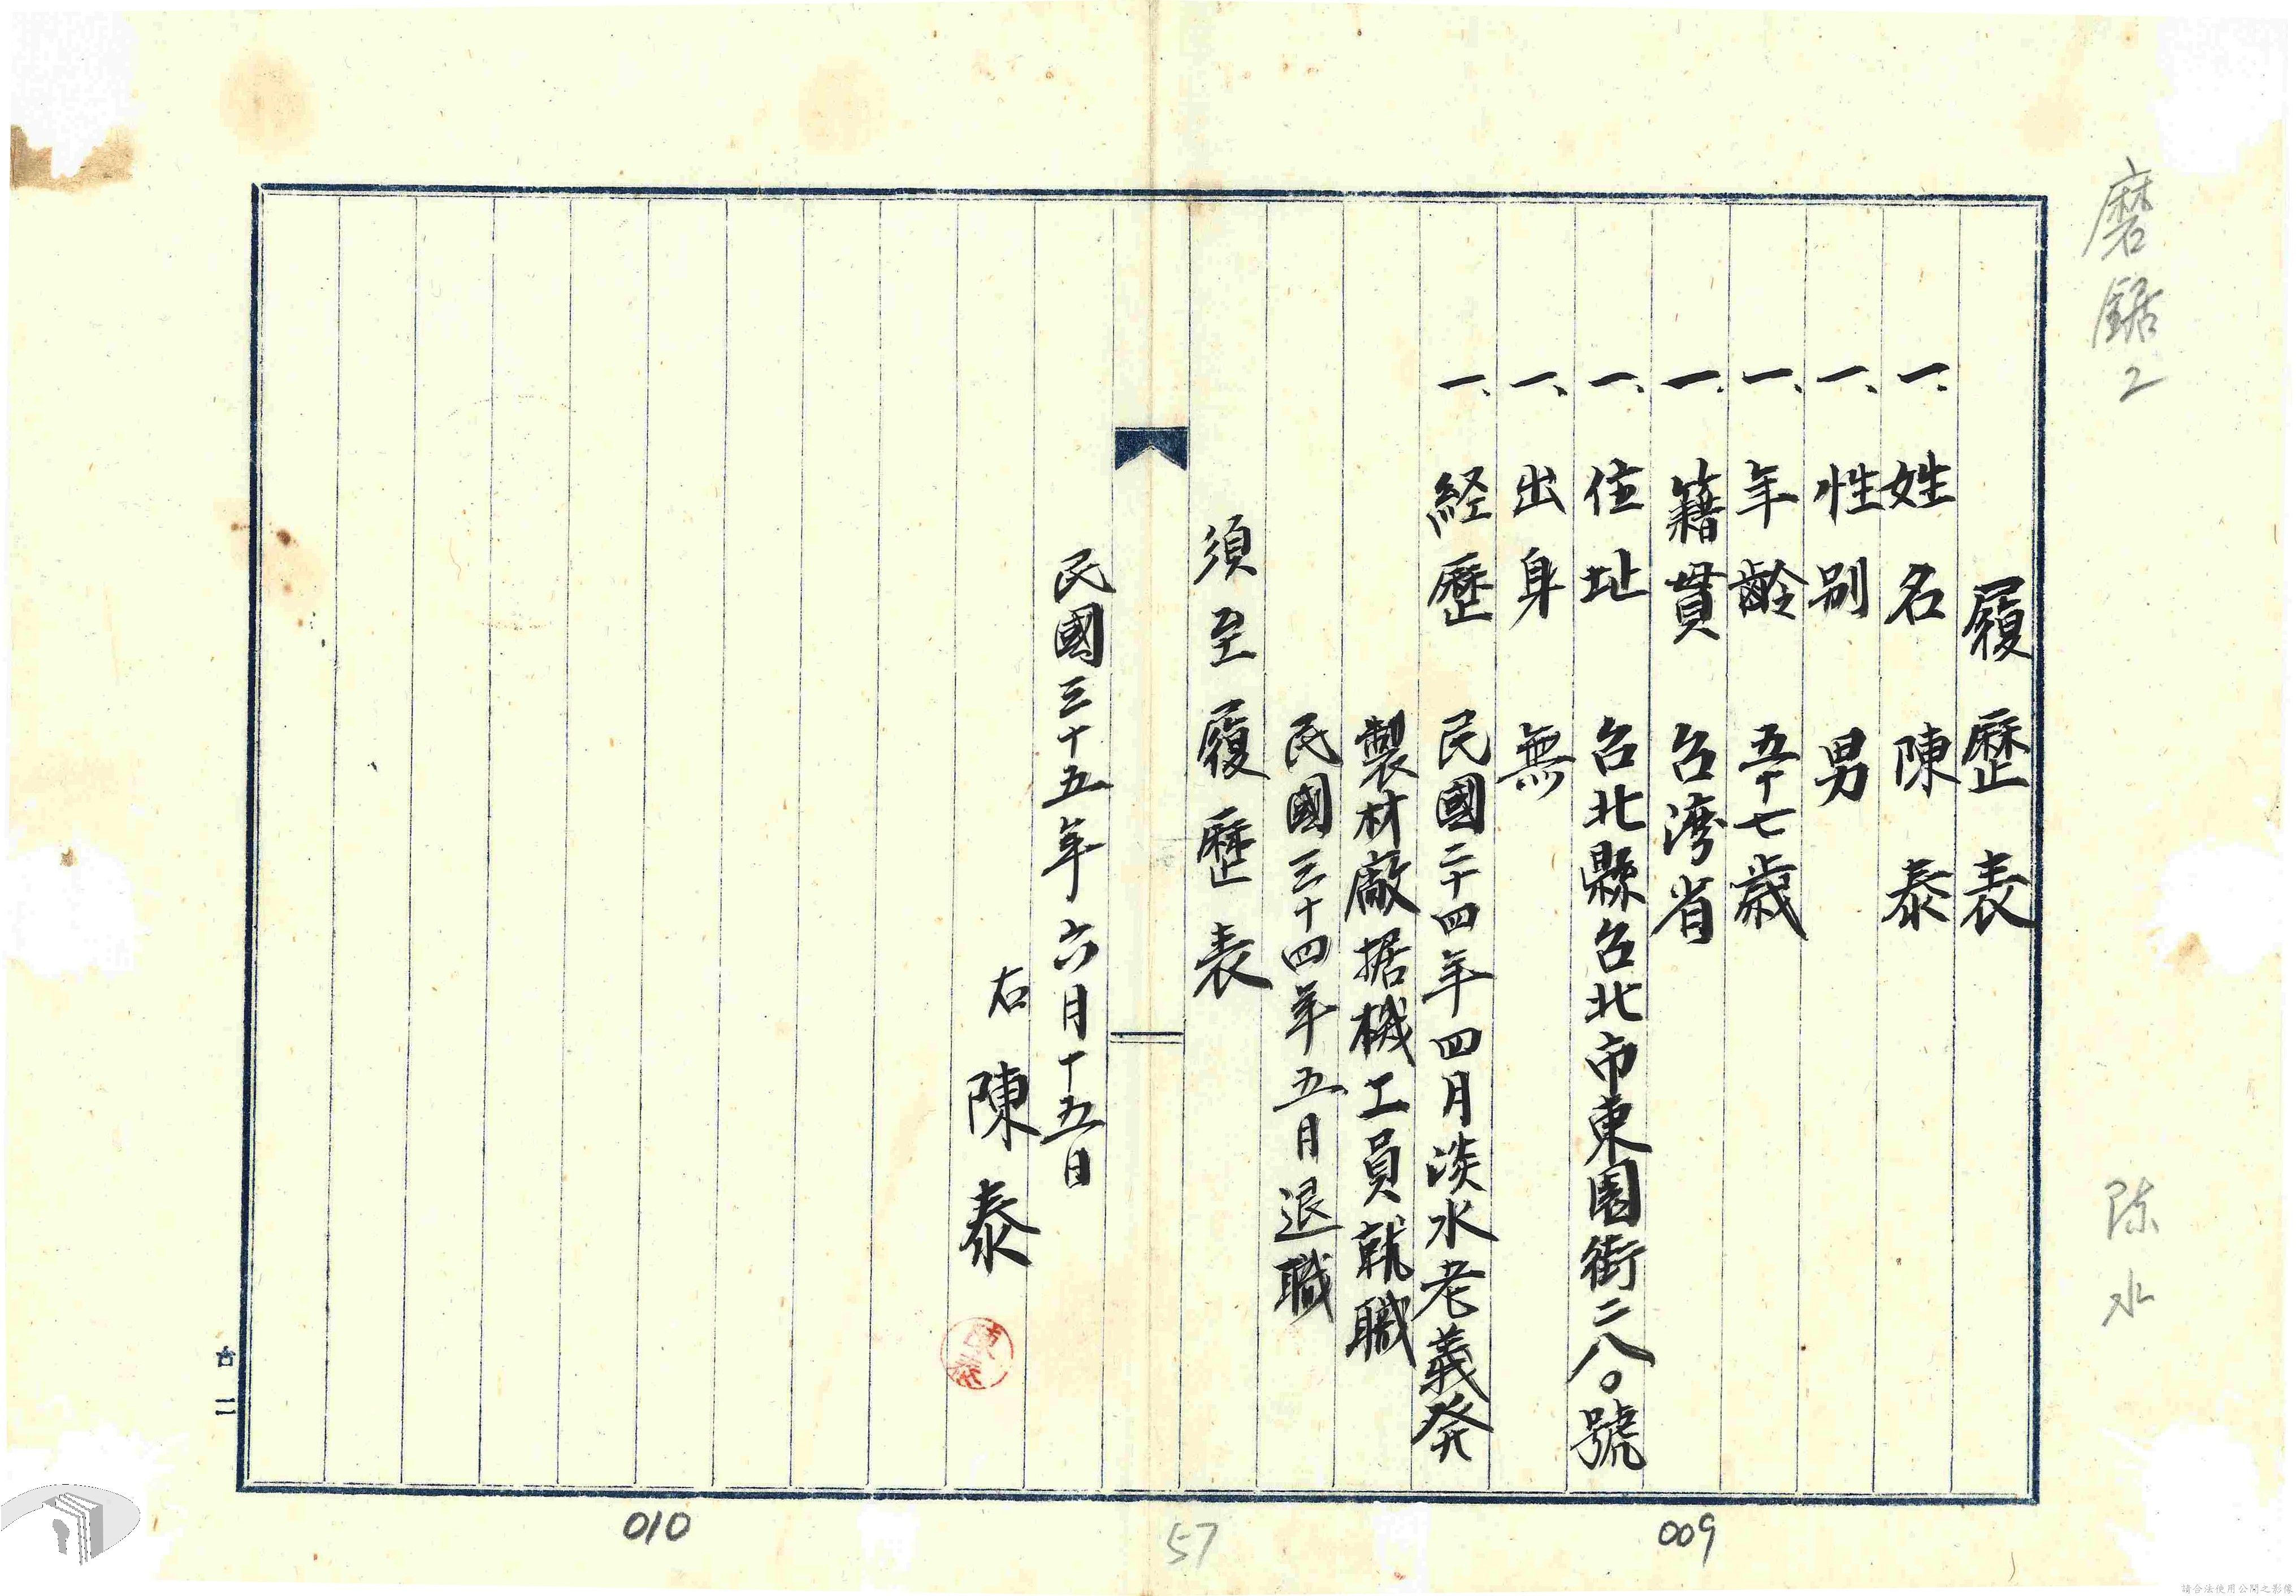 磨鋸2
陈水
履歷表
一、姓名　陳泰
一、性别　男
一、年齡　五十七歲
一、籍貫　台湾省
一、住址　台北縣台北市東園街二八〇號
一、出身　無
一、経歷　民國二十四年四月淡水老義発
製材廠据機工員就職
民國三十四年五月退職
須至履歷表
民國三十五年六月十五日
右　陳泰
陳泰
009
57
010
請合法使用公開之影像